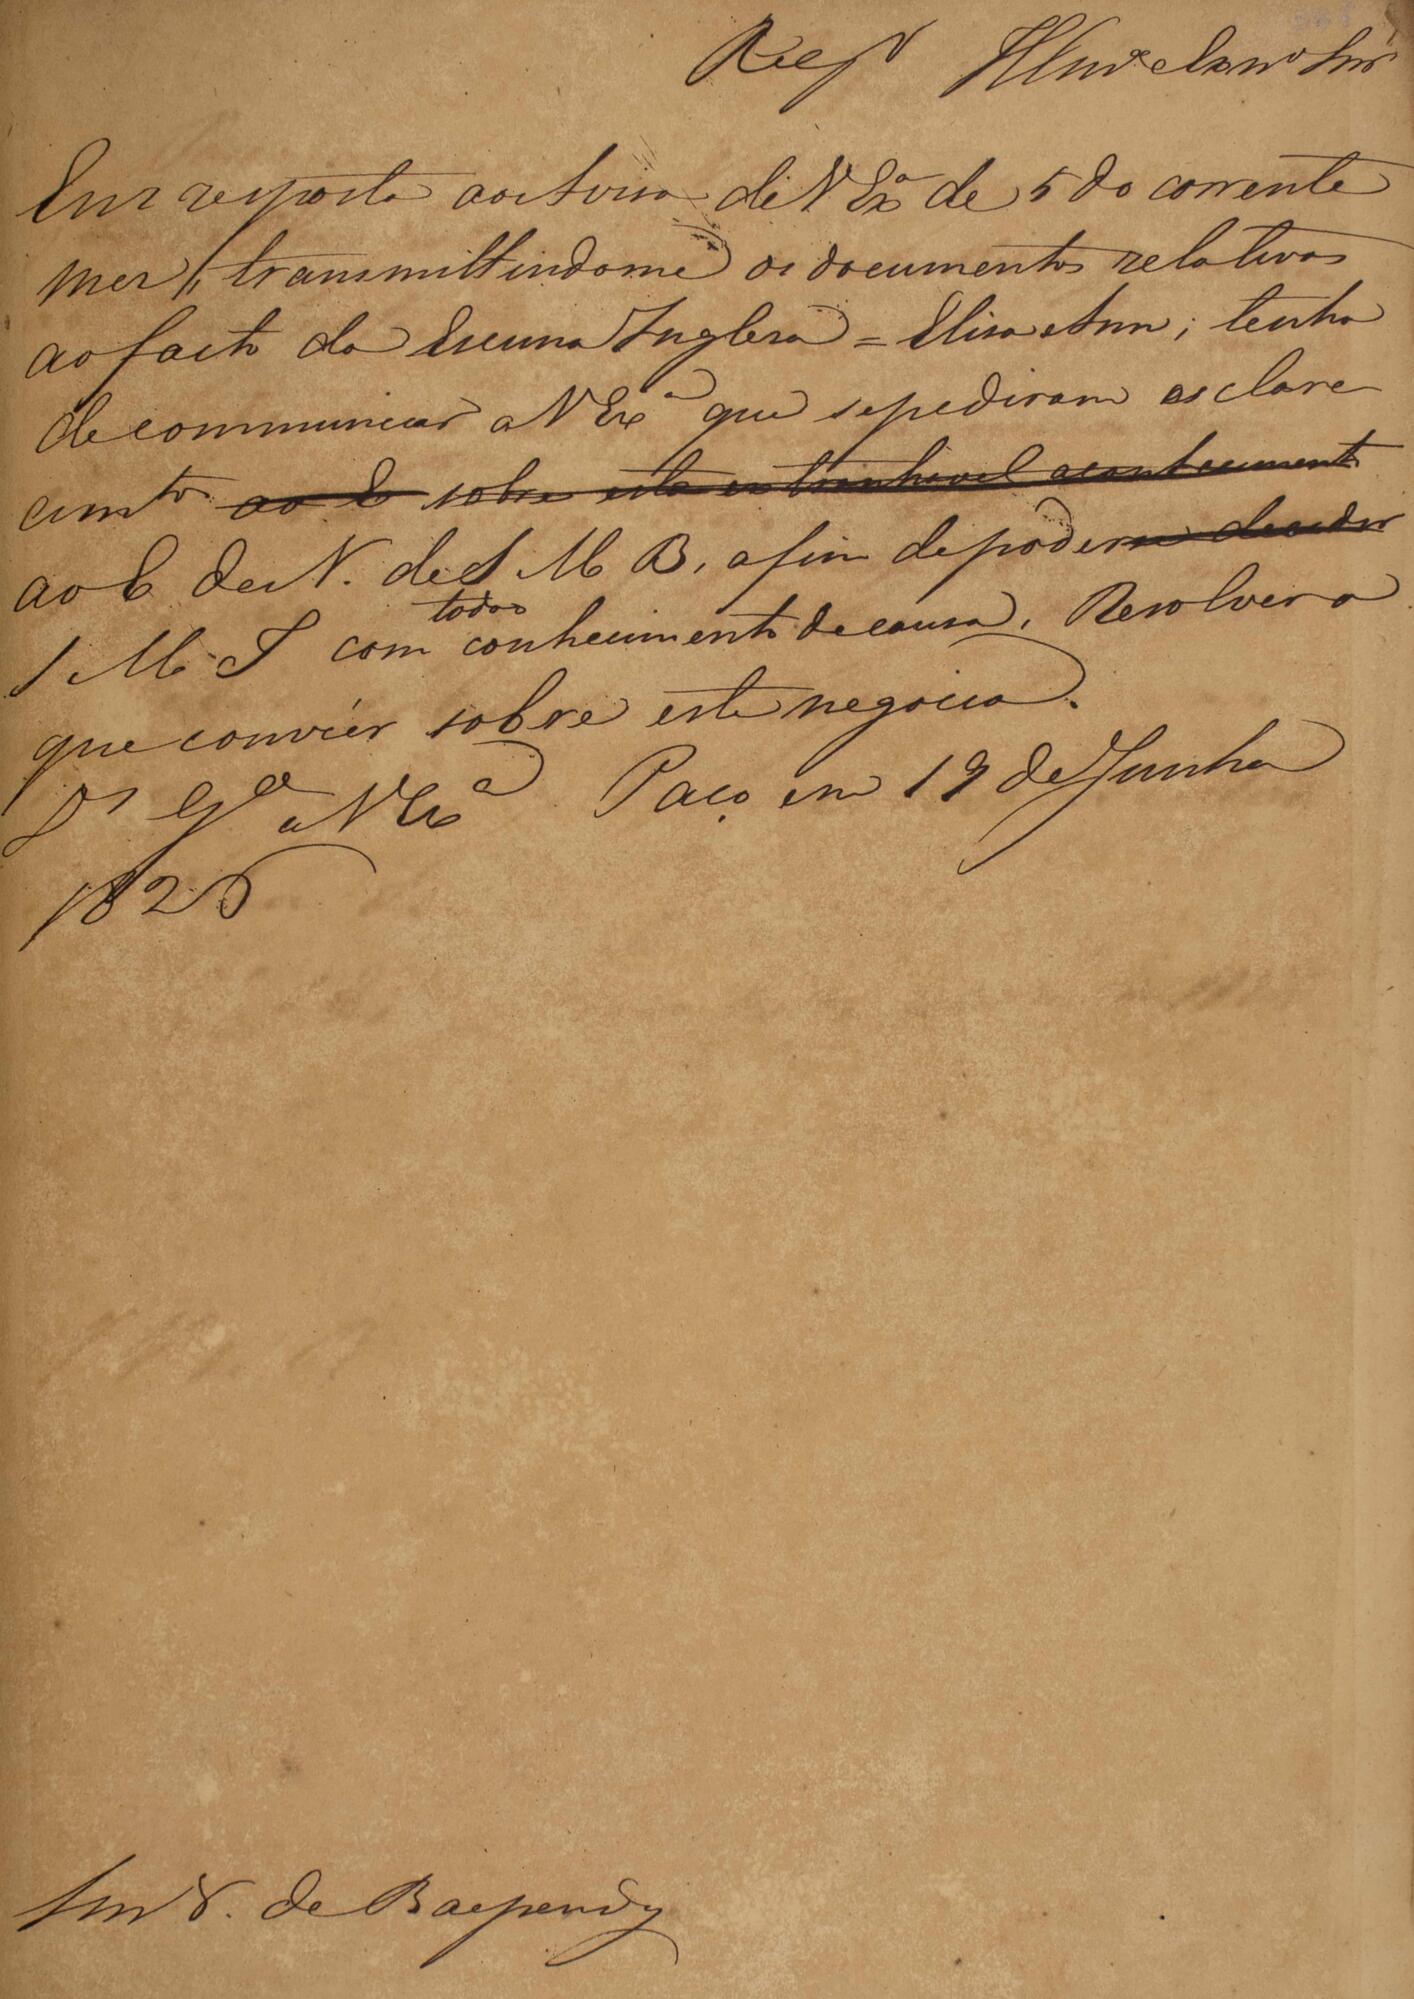 Illm.º e Exm.º Snr
Em resposta ao Aviso de V Ex.ª de 5 do corrente
mez, transmittindome os documentos relativos
ao facto da Escuna Ingleza = Elisa Ann; tenho
de communicar a V Ex.ª que se pediram esclare
cim.tos ao E sobre este extranhavel acontecimento
ao E de N. de S M B, afim de poder se decidir
S M I com todo conhecimento de causa, Resolver o
que convier sobre este negocio.
D.s G.e a V Ex.ª Paço em 19 de Junho
1826
Snr V. de Baependy